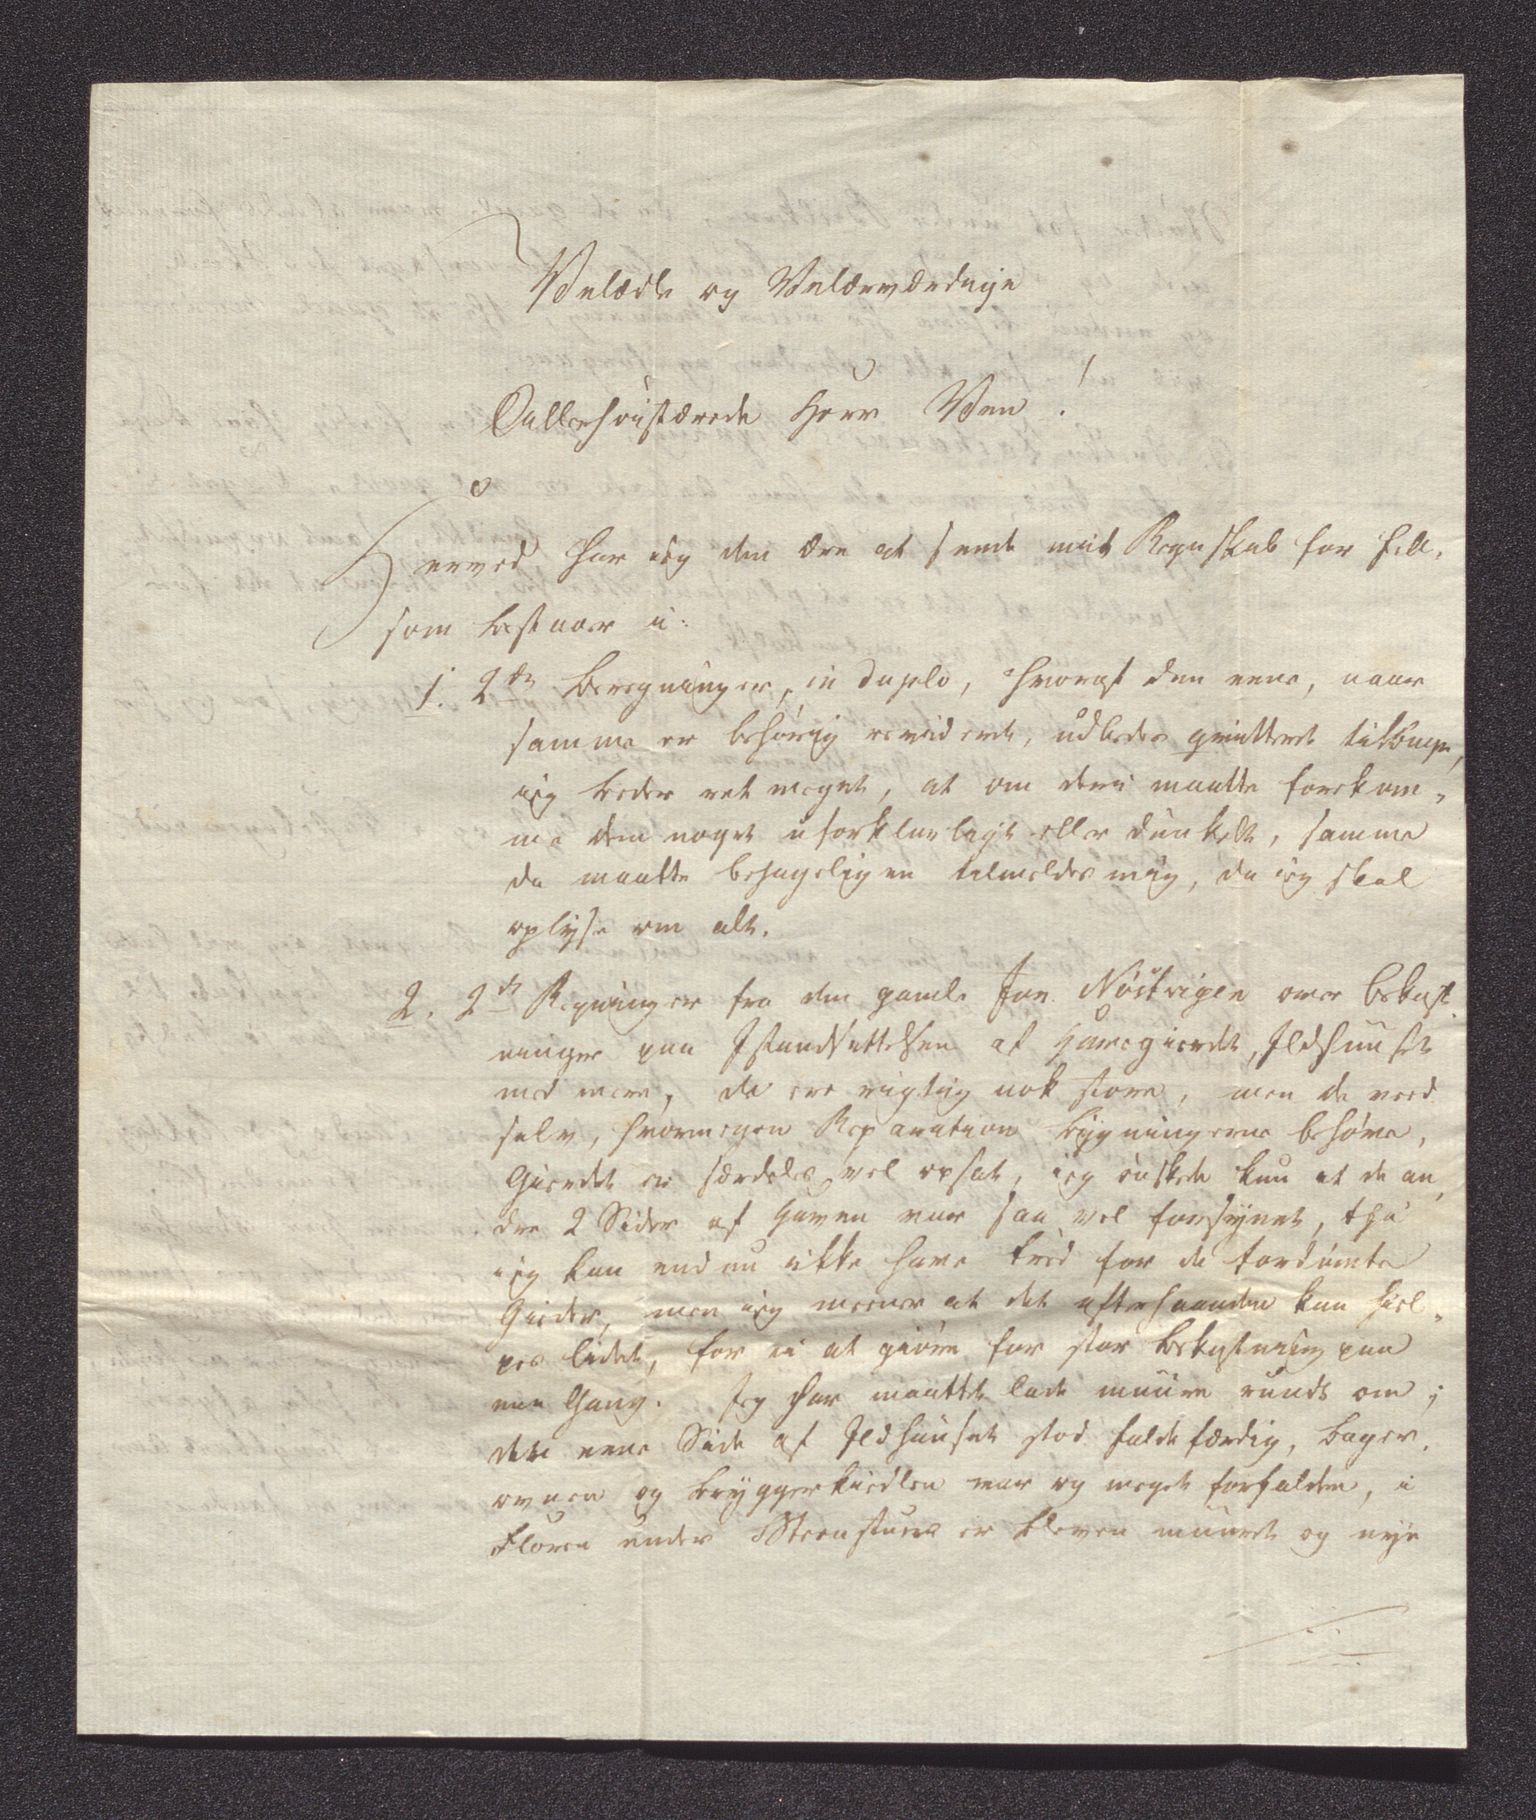 Velædle og Velærværdige
Allerhøistærede Herr Ven!
Herved har ieg den ære at sende mit Regnskab for
som bestaaer i:
1. 2de Beregninger, in duplo, hvoraf den eene, naar
samme er behørig revideret, udbedes qvitteret tilbage,
ieg beder ret meget, at om deri maatte forekom-
me dem noget uforklarligt eller dunkelt, samme
da maatte behageligen tilmeldes mig, da ieg skal
oplyse om alt.
2. 2de Regninger fra den gamle Jon Nöstvigen over bekost-
ninger paa Istandsættelsen af Havegierdet, Ildhuuset
med mere, de ere rigtig nok store, men de veed
selv, hvormegen Reparation bygningerne behøve,
Gierdet er særdeles vel opsat, ieg ønskede kun at de an-
dre 2 Sider af Haven var saa vel forsynet, thi
ieg kan endnu ikke have fred for de fordømte
Gieder, men ieg meener at det efterhaanden kan hiel-
pes lidet, for ei at giøre for stor bekostning paa
een Gang. Jeg har maattet lade muure rundt om;
den eene Side af Ildhuuset stod faldefærdig, bager-
ovnen og bryggerkiedlen var og meget forfalden, i
Floren under Steenstuen er bleven muuret og nye